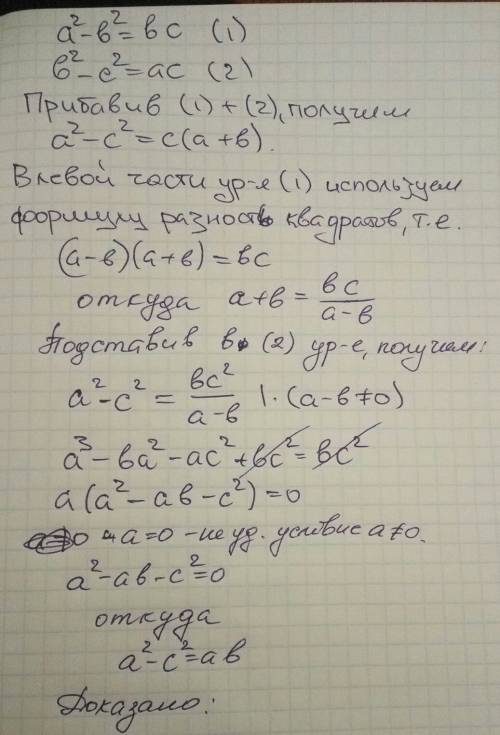 a² - в² = вc (1)
в² - c² = ac (2)
Прибавив (1) + (2), получим
a² - c² = c(a + в).
В левой части ур-е (1) используем
формулу разность квадратов, т.е.
(a - в)(a + в) = вc
откуда a + в = вc / (a - в)
Подставив в (2) ур-е, получим:
a² - c² = вc² / (a - в) | · (a - в ≠ 0)
a³ - вa² - ac² + вc² = вc²
a(a² - aв - c²) = 0
a = 0 - не уд. условие a ≠ 0.
a² - aв - c² = 0
откуда
a² - c² = aв
Доказано: